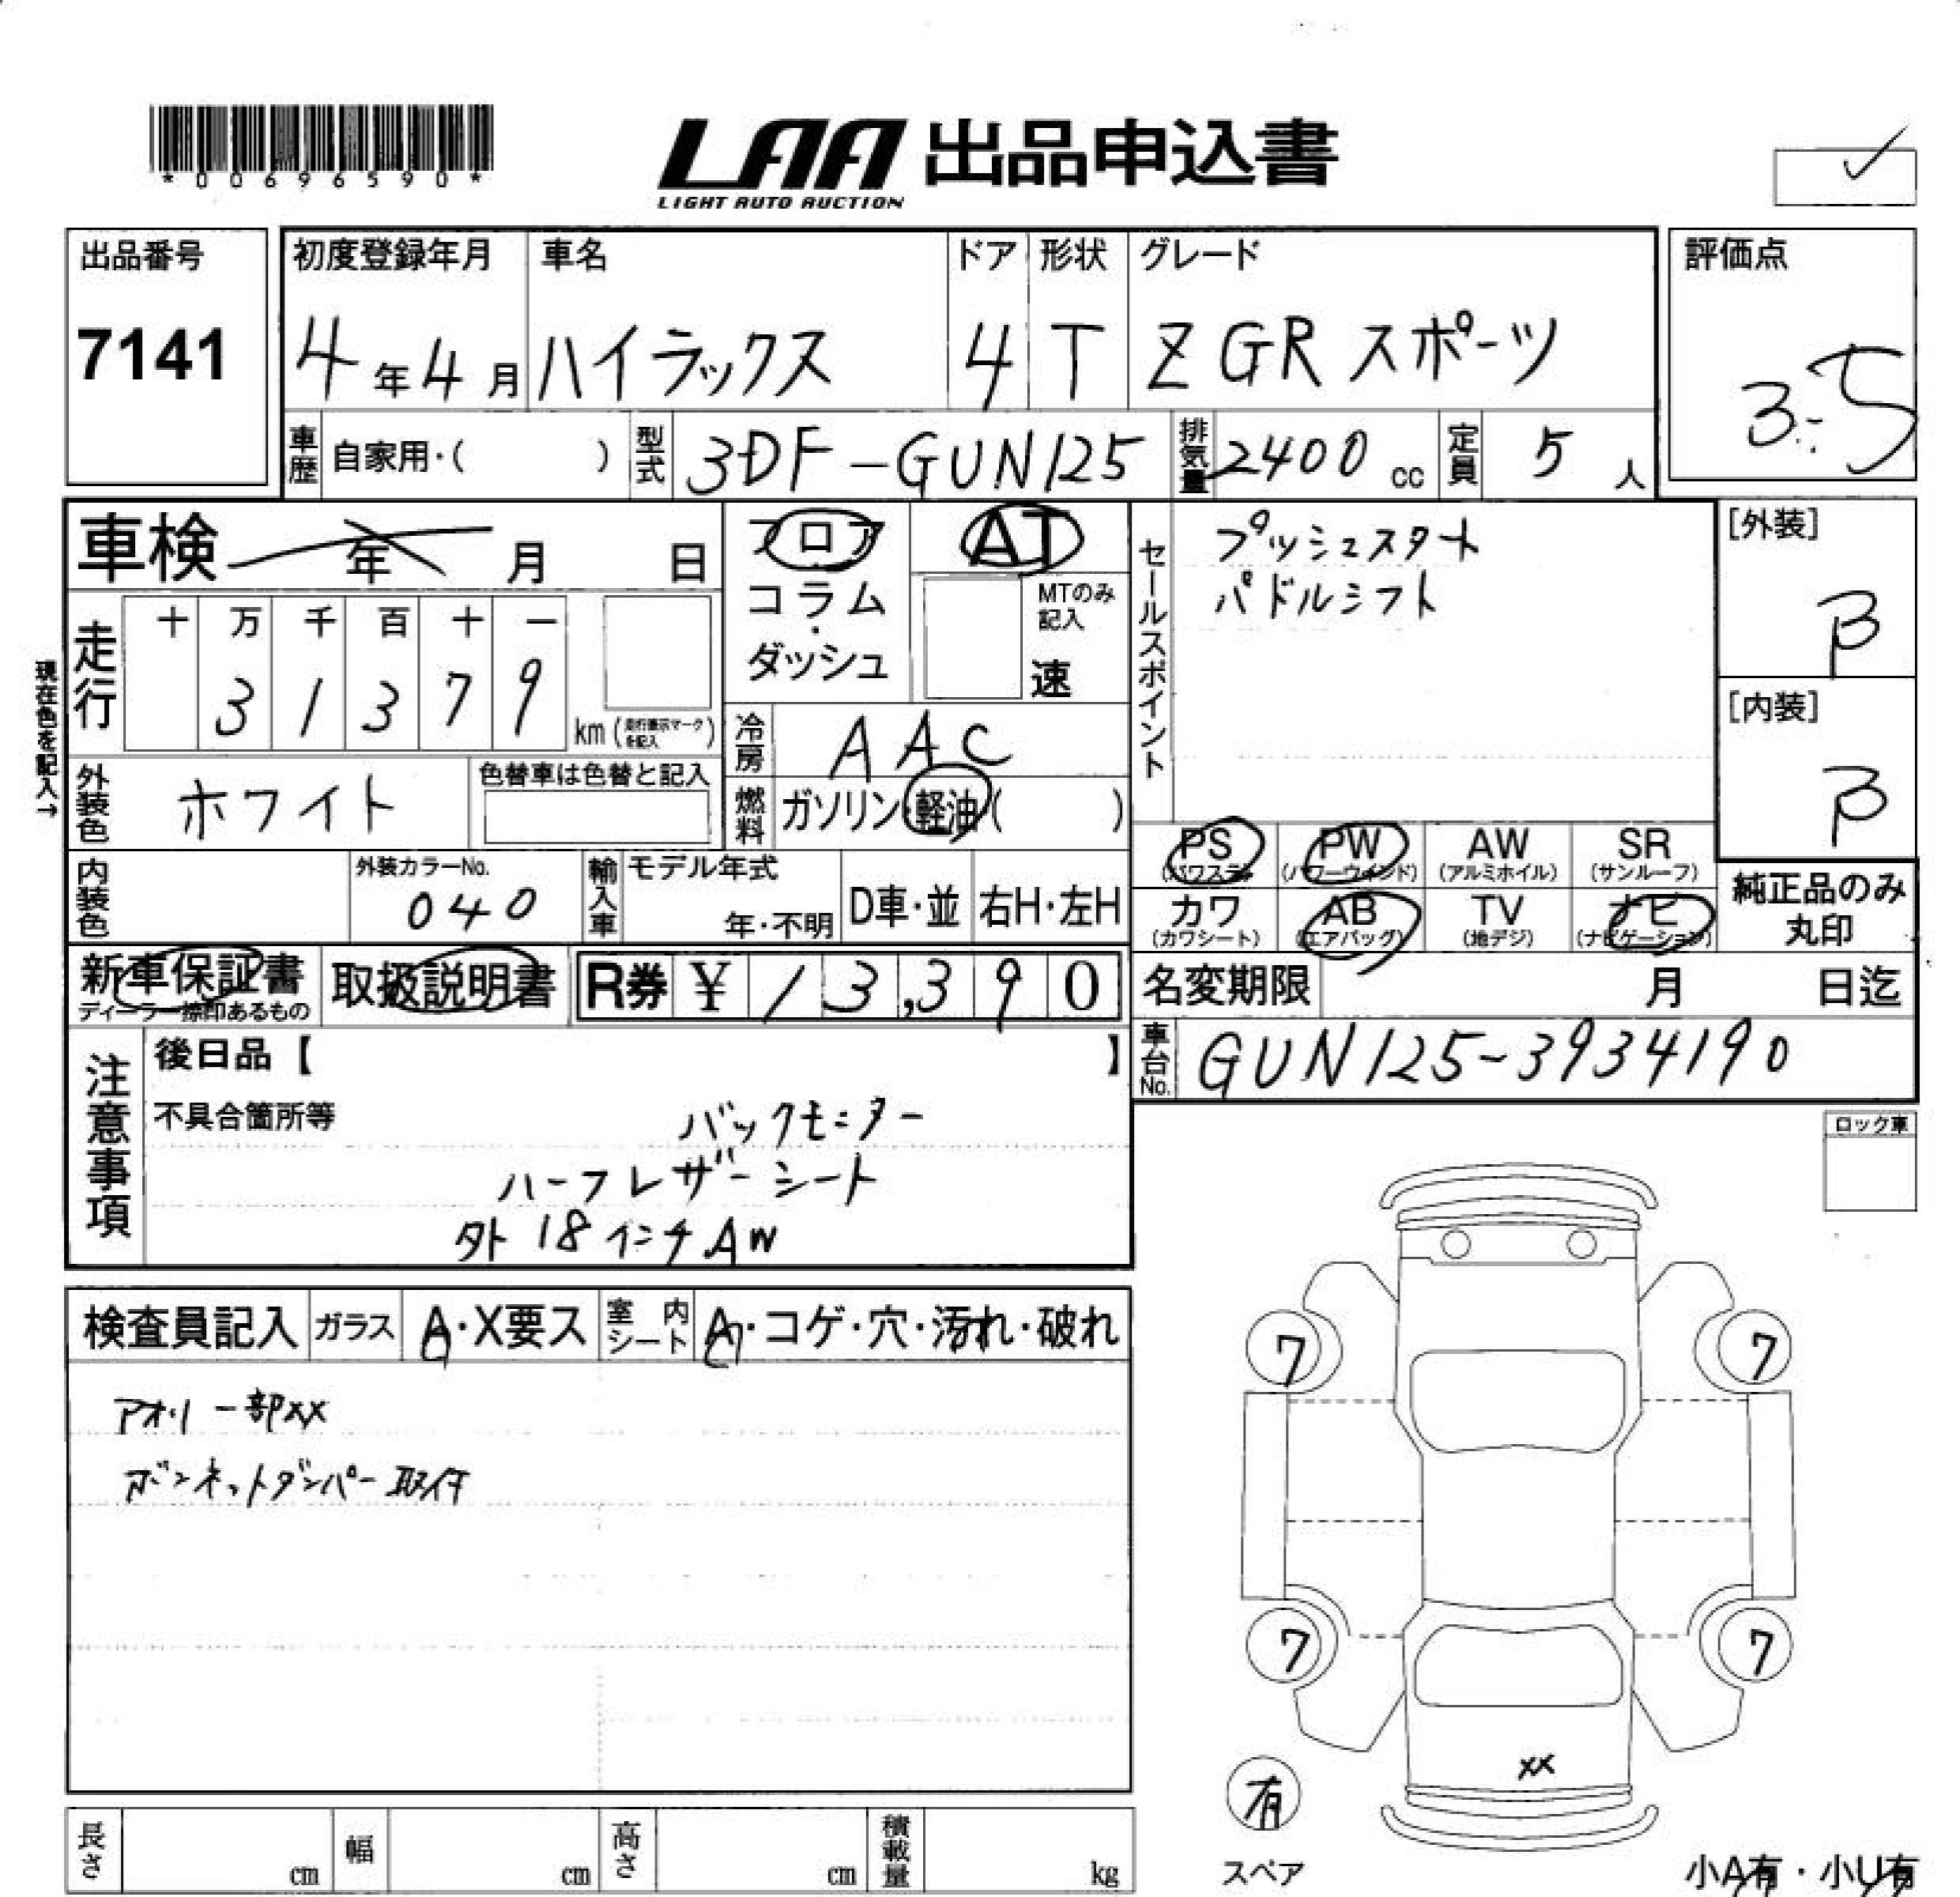 *00696590*
LAA 出品申込書
LIGHT AUTO AUCTION
出品番号
7141
初度登録年月
4年4月
車名
ハイラックス
ドア
4
形状
T
グレード
Z GRスポーツ
評価点
3.5
車歴 自家用・( )
型式 3DF-GUN125
排気量 2400 cc
定員 5 人
車検 年 月 日
フロア
コラム・
ダッシュ
AT
MTのみ記入
速
走行 十 万 千 百 十 一
3 1 3 7 9
km (走行表示マークを記入)
現在色を記入→
冷房 AAC
燃料 ガソリン・軽油( )
外装色 ホワイト
色替車は色替と記入
内装色
外装カラーNo.
040
輸入車
モデル年式
年・不明
D車・並
右H・左H
セールスポイント
プッシュスタート
パドルシフト
[外装]
B
[内装]
B
PS (パワステ)
PW (パワーウインド)
AW (アルミホイル)
SR (サンルーフ)
カワ (カワシート)
AB (エアバッグ)
TV (地デジ)
ナビ (ナビゲーション)
純正品のみ
丸印
新車保証書
ディーラー捺印あるもの
取扱説明書
R券 ¥ 13,390
名変期限 月 日迄
車台No. GUN125-3934190
注意事項
後日品【 】
不具合箇所等
バックモニター
ハーフレザーシート
外 18インチAW
ロック車
検査員記入
ガラス A・X要ス
室内シート A・コゲ・穴・汚れ・破れ
アオリ一部XX
ボンネットダンパー取付
7
7
7
7
XX
有
スペア
小A有・小U有
長さ cm
幅 cm
高さ cm
積載量 kg